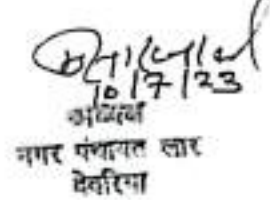 10/7/23
अध्यक्ष
नगर पंचायत लार
देवरिया